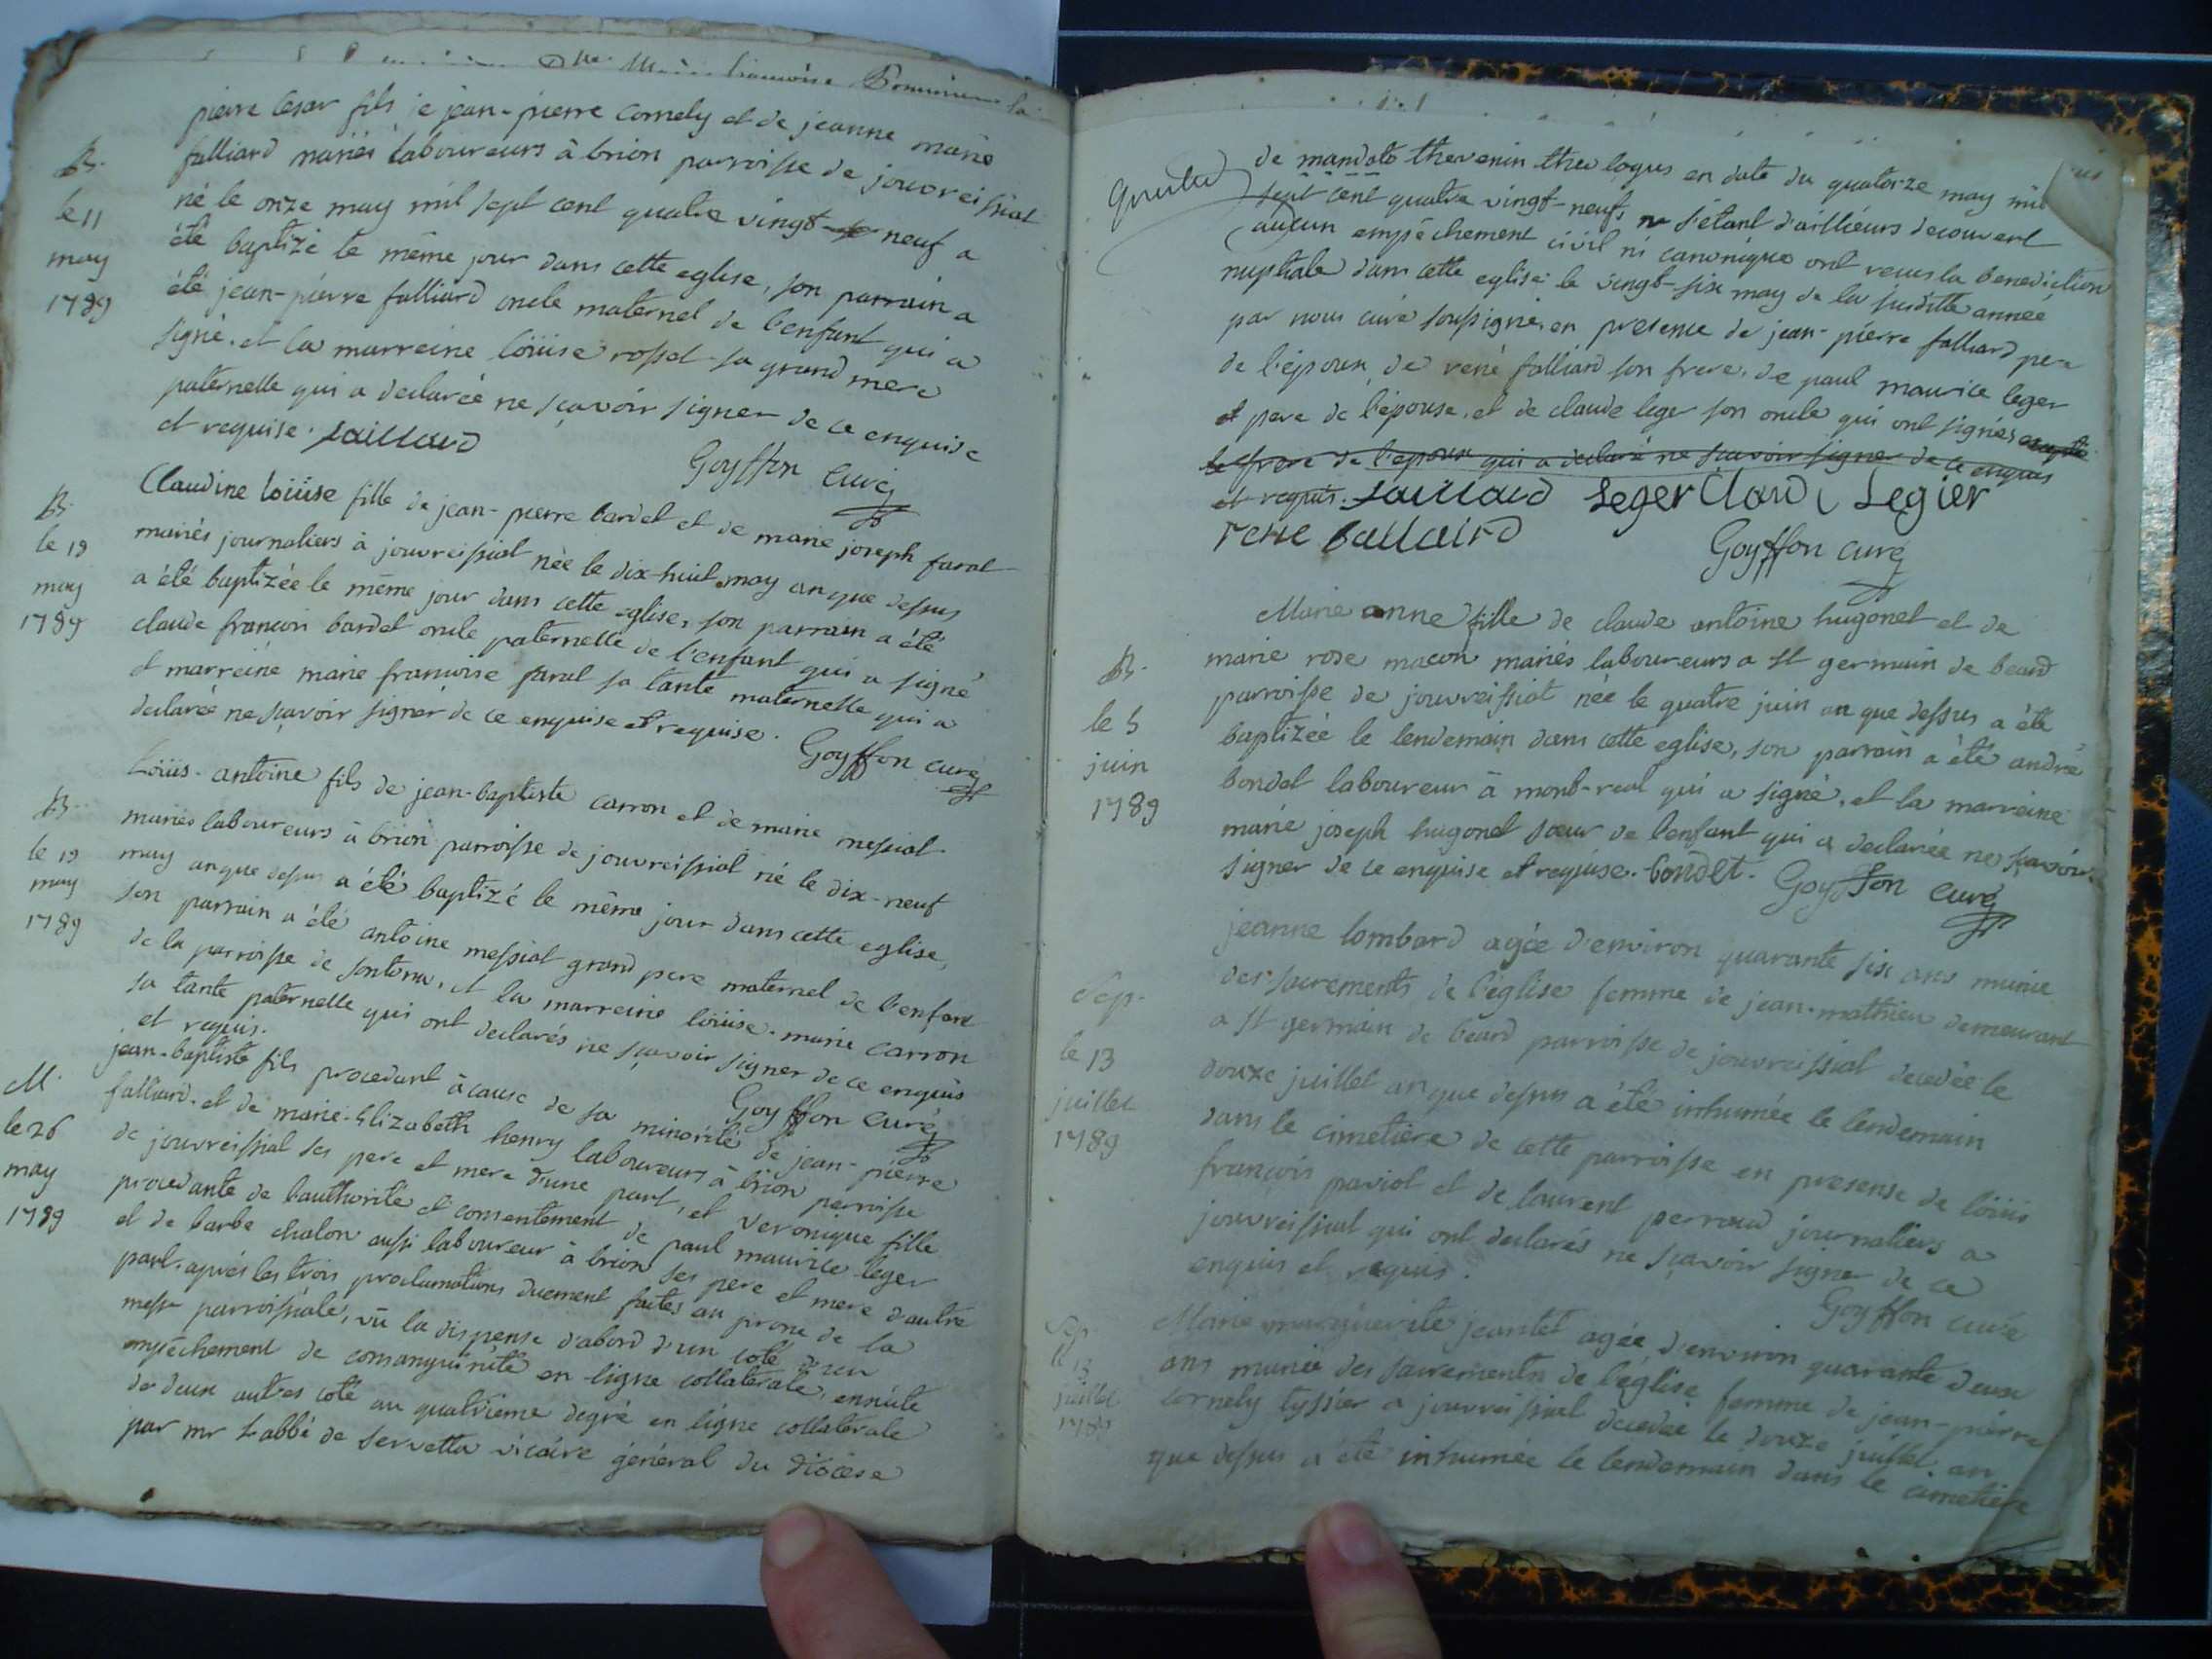 pierre Cesar fils de jean-pierre Cornely et de jeanne marie
falliard mariés laboureurs à brion parroisse de jouvreissiat
né le onze may mil sept cent quatre vingt neuf a
été baptizé le même jour dans cette eglise, son parrain a
été jean-pierre falliard oncle maternel de l'enfant qui a
signé. et la marreine loüise rosset sa grand mere
paternelle qui a declarée ne sçavoir signer de ce enquise
et requise. faillard
Goyffon Curé
B.
le 11
may
1789
Claudine loüise fille de jean-pierre bardet et de marie joseph favat
mariés journaliers à jouvreissiat née le dix-huit may an que dessus
a été baptizée le même jour dans cette eglise, son parrain a été
claude francois bardet oncle paternelle de l'enfant qui a signé
et marreine marie francoise favat sa tante maternelle qui a
declarée ne sçavoir signer de ce enquise et requise.
Goyffon curé
B.
le 19
may
1789
Loüis-antoine fils de jean-baptiste carron et de marie messiat
mariés laboureurs à brion parroisse de jouvreissiat né le dix-neuf
may an que dessus a été baptizé le même jour dans cette eglise,
son parrain a été antoine messiat grand pere maternel de l'enfant
de la parroisse de , et la marreine loüise-marie carron
sa tante paternelle qui ont declarés ne sçavoir signer de ce enquis
et requis.
Goyffon Curé
B.
le 19
may
1789
jean-baptiste fils procedant à cause de sa minorité de jean-pierre
falliard et de marie-Elizabeth henry laboureurs à brion perroisse
de jouvreissiat ses pere et mere d'une part, et veronique fille
procedante de l'authorité et consentement de paul maurice leger
et de barbe chalon aussi laboureur à brion ses pere et mere d'autre
part. après les trois proclamations duement faites au prone de la
messe parroissiale, vû la dispense d'abord d'un coté d'un
empêchement de consanguinité en ligne collaterale, ensuite
de deux autres coté au quatrieme degré en ligne collaterale
par mr L'abbé de servetta vicaire général du diocèse
M.
le 26
may
1789
de mandato thevenin theologus en date du quatorze may mil
sept cent quatre vingt-neuf, ne s'étant d'aillieurs decouvert
aucun empêchement civil ni canonique ont reçus la benediction
nuptiale dans cette eglise le vingt-six may de la susditte année
par nous curé soussigné en presence de jean-pierre falliard pere
de l'époux, de rené falliard son frere, de paul maurice leger
et pere de l'épouse, et de claude leger son oncle qui ont signés excepté
le frere de l'époux qui a declaré ne sçavoir signer de ce enquis
et requis. faillard Leger Claud Legier
rene fallaird
Goyffon curé
Marie anne fille de claude antoine hugonet et de
marie rose macon mariés laboureurs a St germain de beard
parroisse de jouvreissiat née le quatre juin an que dessus a été
baptizée le lendemain dans cette eglise, son parrain a été andré
bondet laboureur à mont-real qui a signé, et la marreine
marie joseph hugonet sœur de l'enfant qui a declarée ne sçavoir
signer de ce enquise et requise. bondet.
Goyffon Curé
B.
le 5
juin
1789
jeanne lombard agée d'environ quarante six ans munie
des sacrements de l'eglise femme de jean-mathieu demeurant
a St germain de beard parroisse de jouvreissiat decedée le
douze juillet an que dessus a été inhumée le lendemain
dans le cimetière de cette parroisse en presense de loüis
françois paviot et de laurent perraud journaliers a
jouvreissiat qui ont declarés ne sçavoir signer de ce
enquis et requis.
Goyffon curé
Sep.
le 13
juillet
1789
Marie marguerite jeantet agée d'environ quarante deux
ans munie des sacrements de l'église femme de jean-pierre
Cornely tyssier a jouvreissiat decedée le douze juillet an
que dessus a été inhumée le lendemain dans le cimetière
Sep.
le 13
juillet
1789